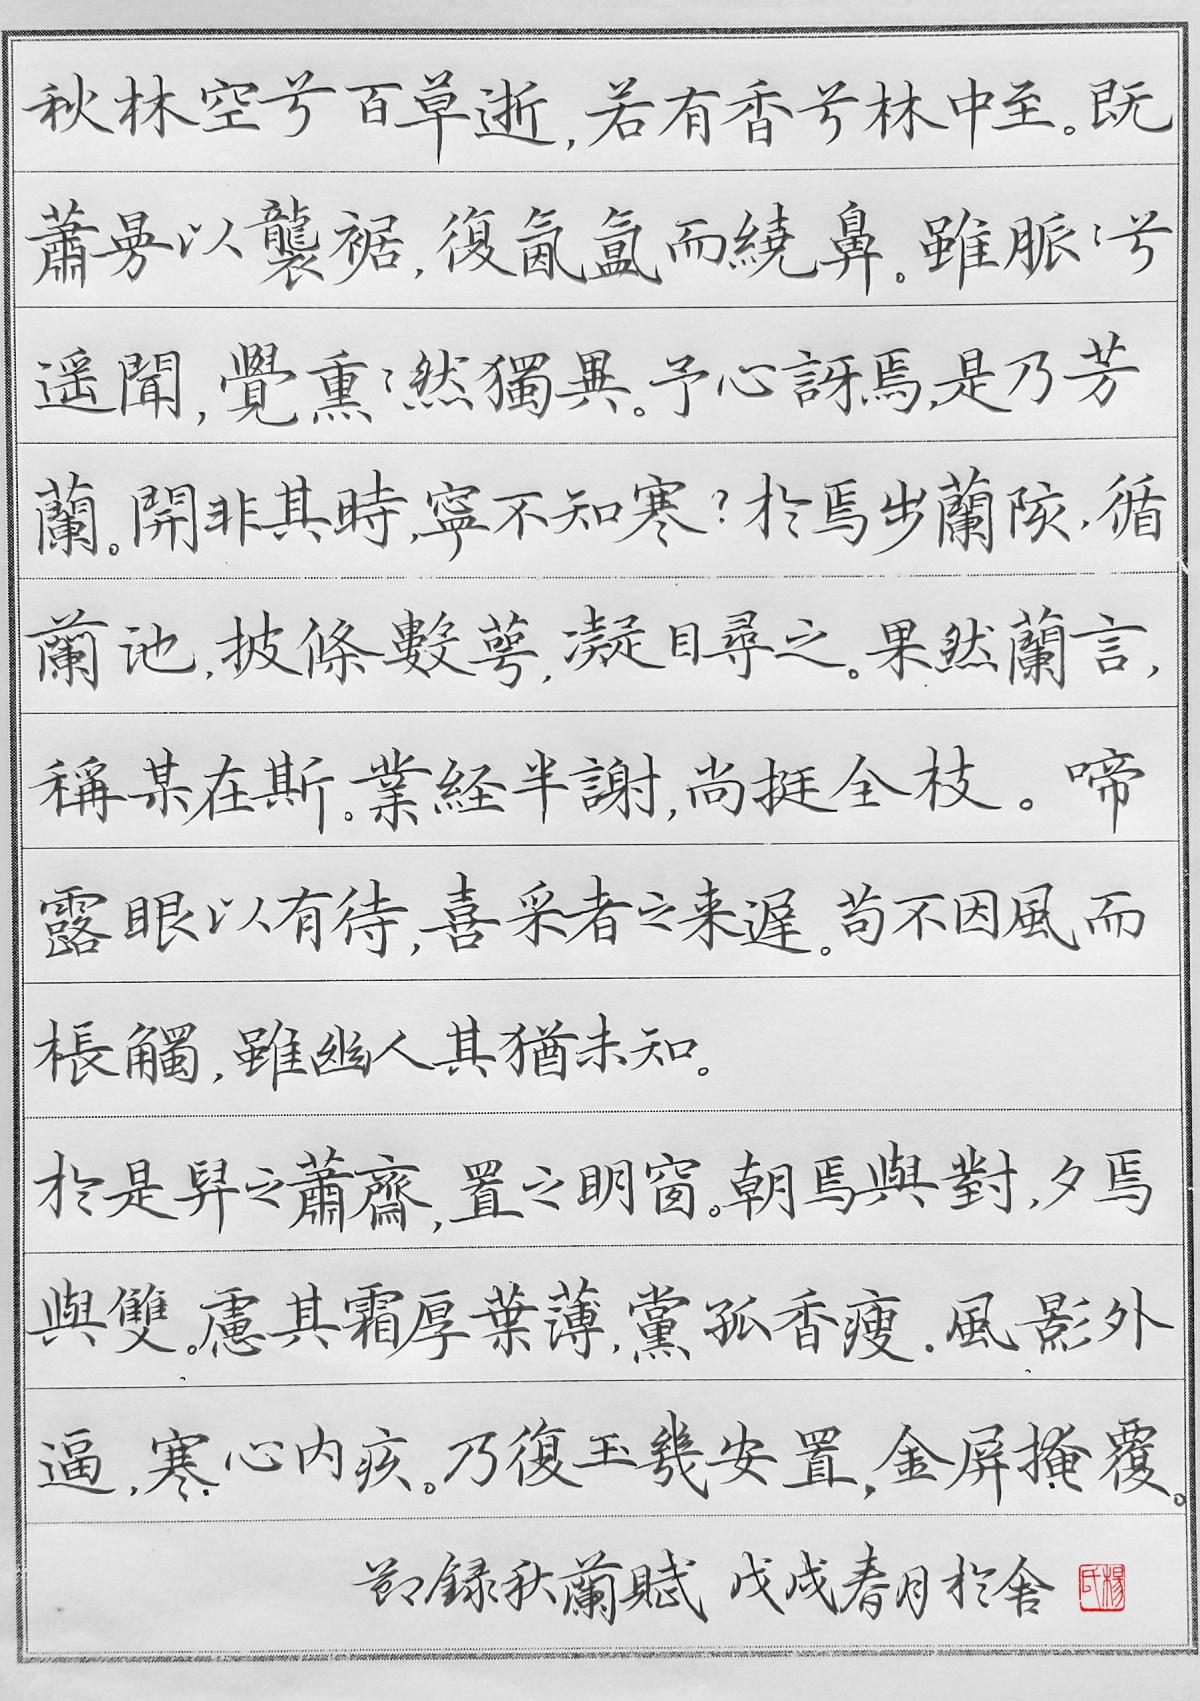 秋林空兮百草逝，若有香兮林中至。既
蕭曼以襲裾，復氤氲而繞鼻。雖脈〻兮
遥聞，覺熏〻然獨異。予心訝焉，是乃芳
蘭。開非其時，寧不知寒？於焉出蘭陔，循
蘭池，披條數萼，凝目尋之。果然蘭言，
稱某在斯。業経半謝，尚挺全枝。啼
露眼以有待，喜采者之来遲。苟不因風而
棖觸，雖幽人其猶未知。
於是舁之蕭齋，置之明窗。朝焉與對，夕焉
與雙。慮其霜厚葉薄，黨孤香瘦。風影外
逼，寒心内疚。乃復玉幾安置，金屏掩覆。
節録秋蘭賦 戊戌春月於舍
楊氏